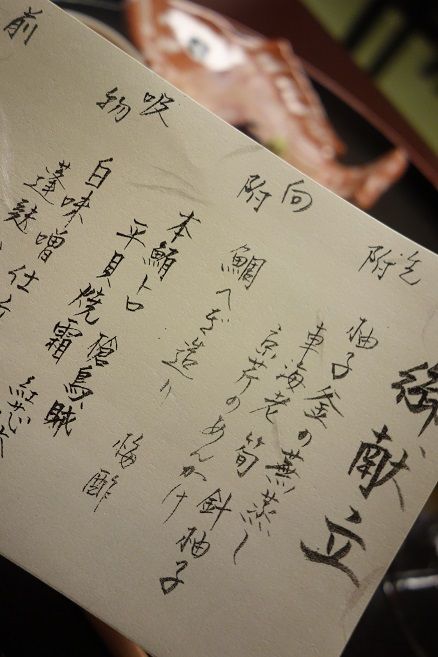 御献立
先附
柚子釜の蕪蒸し
車海老 筍 針柚子
京芹のあんかけ
向附
鯛へぎ造り
本鮪トロ 梅酢
平貝焼霜 槍烏賊
吸物
白味噌仕立
蓬麩
前